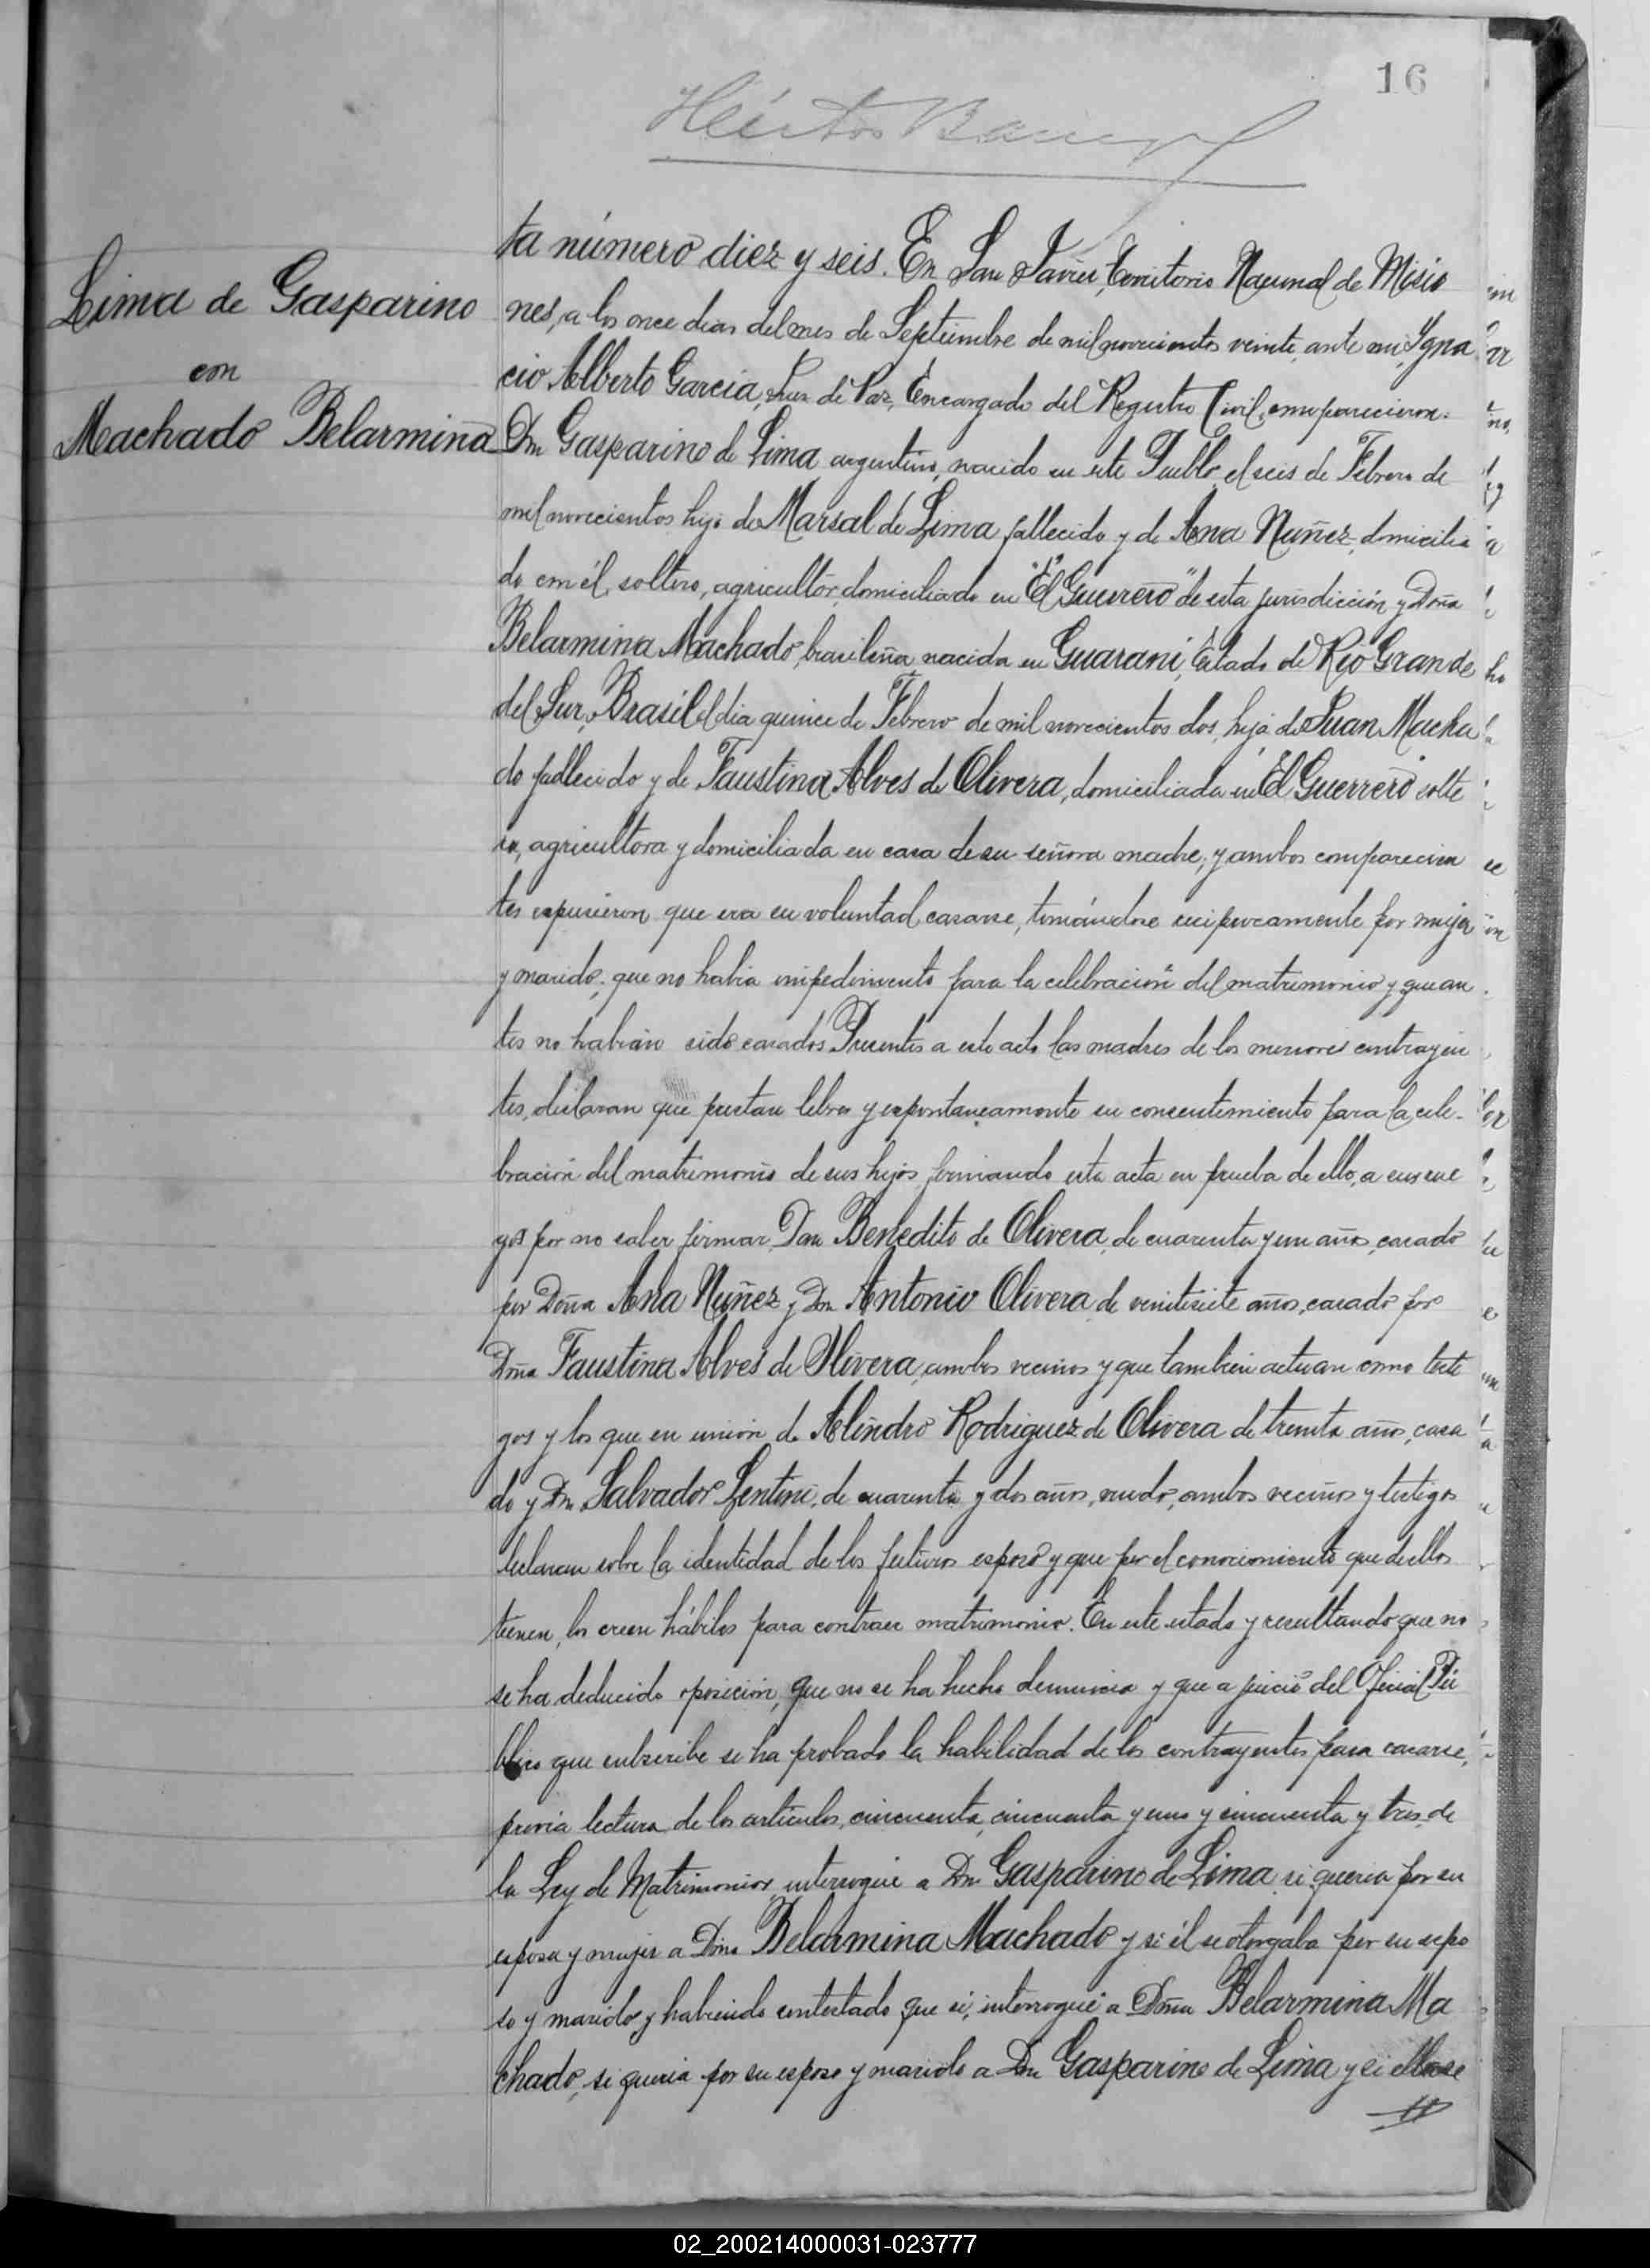 16
Héctor
Lima de Gasparino
con
Machado Belarmina
ta número diez y seis. En San Javier, Territorio Nacional de Misio
nes, a los once dias del mes de Septiembre de mil novecientos veinte, ante mi, Ygna
cio Alberto Garcia, Juez de Paz, Encargado del Registro Civil, comparecieron:
Dn Gasparino de Lima argentino, nacido en este Pueblo el seis de Febrero de
mil novecientos hijo de Marsal de Lima fallecido y de Ana Nuñez, domicilia
do con él, soltero, agricultor, domiciliado en "El Guerrero" de esta jurisdicción y Doña
Belarmina Machado, brasileña, nacida en Guarani, Estado de Rio Grande
del Sur, Brasil el dia quince de Febrero de mil novecientos dos, hija de Juan Macha
do fallecido y de Faustina Alves de Olivera, domiciliada en El Guerrero solte
ra, agricultora y domiciliada en casa de su señora madre, y ambos comparecien
tes expusieron que era su voluntad casarse, tomándose reciprocamente por mujer
y marido; que no habia impedimento para la celebración del matrimonio y que an
tes no habian sido casados. Presentes a este acto las madres de los menores contrayen
tes, declaran que prestan libre y espontaneamente su consentimiento para la cele-
bración del matrimonio de sus hijos, firmando esta acta en prueba de ello, a sus rue
gos por no saber firmar, Don Benedito de Olivera, de cuarenta y un años, casado
por Doña Ana Nuñez y Dn Antonio Olivera de veintisiete años, casado por
Dña Faustina Alves de Olivera, ambos vecinos y que tambien actuan como testi
gos y los que en unión de Alindro Rodriguez de Olivera de treinta años, casa
do y Dn Salvador Lentini, de cuarenta y dos años, viudo, ambos vecinos y testigos
declaran sobre la identidad de los futuros esposos y que por el conocimiento que de ellos
tienen, los creen hábiles para contraer matrimonio. En este estado y resultando que no
se ha deducido oposición, que no se ha hecho denuncia y que a juicio del Oficial Pú
blico que subscribe se ha probado la habilidad de los contrayentes para casarse,
previa lectura de los articulos, cincuenta, cincuenta y uno y cincuenta y tres, de
la Ley de Matrimonios, interrogué a Dn Gasparino de Lima si queria por su
esposa y mujer a Dña Belarmina Machado y si él se otorgaba por su espo
so y marido y habiendo contestado que si, interrogué a Doña Belarmina Ma
chado, si queria por su esposo y marido a Dn Gasparino de Lima y si ella se
02_200214000031-023777